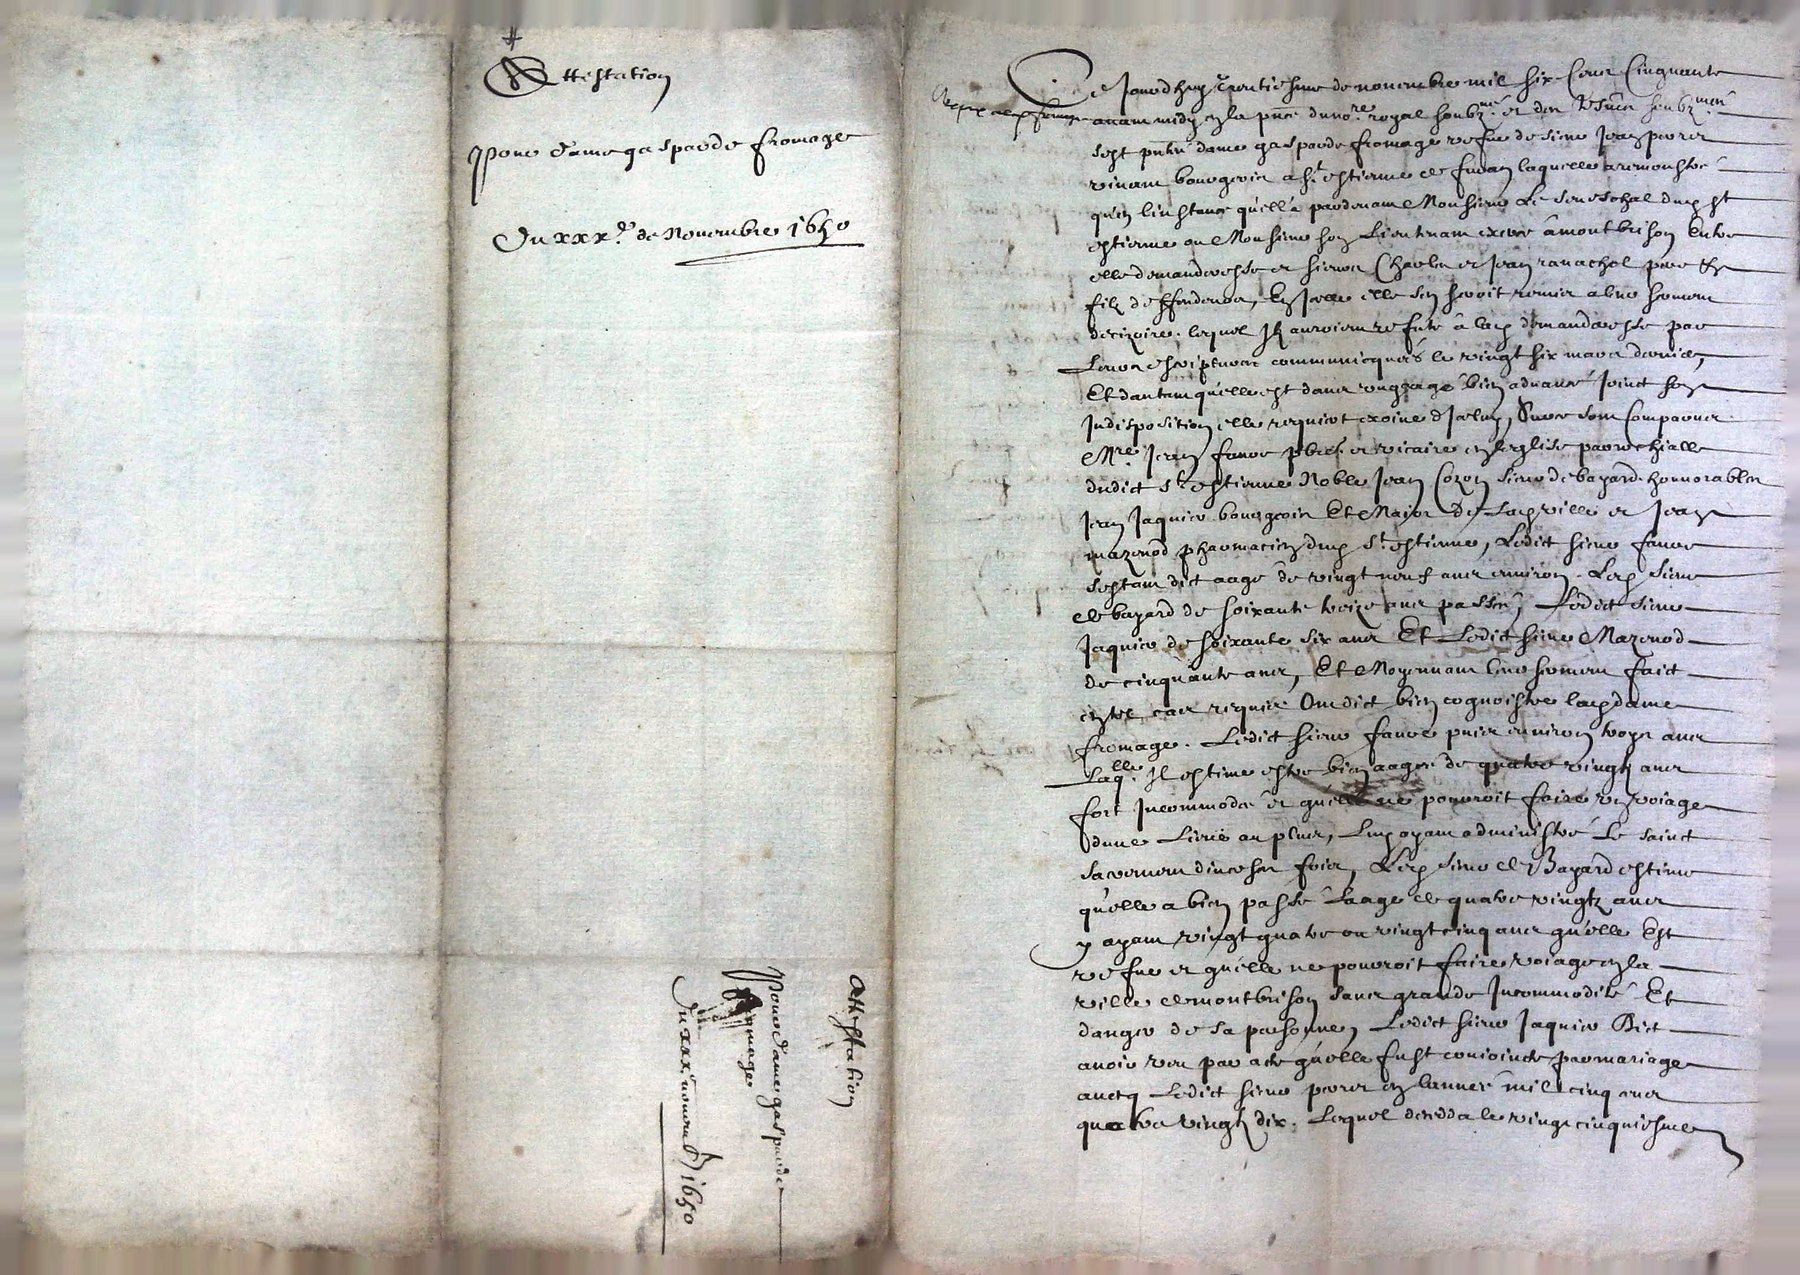 Attestation
Pour dame gasparde fromage
Du xxx.e de Novembre 1650
Attestation
Pour dame gasparde
fromage
Du xxx novemb 1650
Ce Jourdhuy trentiesme de novembre mil six Cens Cinquante
avant midy en la pnce du no.re royal soubz.né et des tesmoin soubz
dame gasparde fromage vefue de sieur Jean
vivant bourgeois a St. estienne de furan laquelle a remonstré
qu'en linstance quell'a pardevant Monsieur Le Seneschal dud st
estienne ou Monsieur son Lieutenant exerce à montbrison Entre
elle demanderesse et sieurs Charles et Jean ranachol pere &
filz deffendeurs, En Jcelle elle sen seroit remise a leur serment
decizoire. lequel Jlz auroient refuté à lad demanderesse par
Leurs escriptures communicquées le vingt six mars dernier,
Et dautant quelle est dans ung aage bien advancé Joinct son
Indisposition elle requiert exoine dJcelluy, Surce sont Comparus
Mre Jean faure pbre et vicaire en leglise parrochialle
dudict St. estienne Noble Jean Cozon sieur de bayard honnorables
Jean Jaquier bourgeois Et Major de Lad ville et Jean
mazenod pharmacien dud St. estienne, Ledict sieur faure
sestant dict aage de vingt neuf ans environ. Led sieur
de bayard de soixante treize ans passés, Ledict sieur
Jaquier de soixante six ans Et Ledict sieur Mazenod
de cinquante ans, Et Moyennant leur serment faict
en tel cas requis Ont dict bien cognoistre lad dame
fromage. Ledict sieur faure puis environ troys ans
Laq.lle Jl estime estre bien aagée de quatre vingtz ans
fort Incommodée et quelle ne pourroit faire un voiage
dune Lieue au plus, Luy ayant administré Le sainct
sacrement diverses foies, Led sieur de Bayard estime
qu'elle a bien passé Laage de quatre vingtz ans
y ayant vingt quatre ou vingt cinq ans qu'elle Est
vefue et qu'elle ne pourroit faire voiage en la
ville de montbrison sans grande Incommodité Et
danger de sa personne, Ledict sieur Jaquier Dict
avoir veu par acte qu'elle fust conjoincte par mariage
avecq Ledict sieur en lannée mil cinq cens
quatre vingtz dix. Lequel deceda le vingt cinquiesme